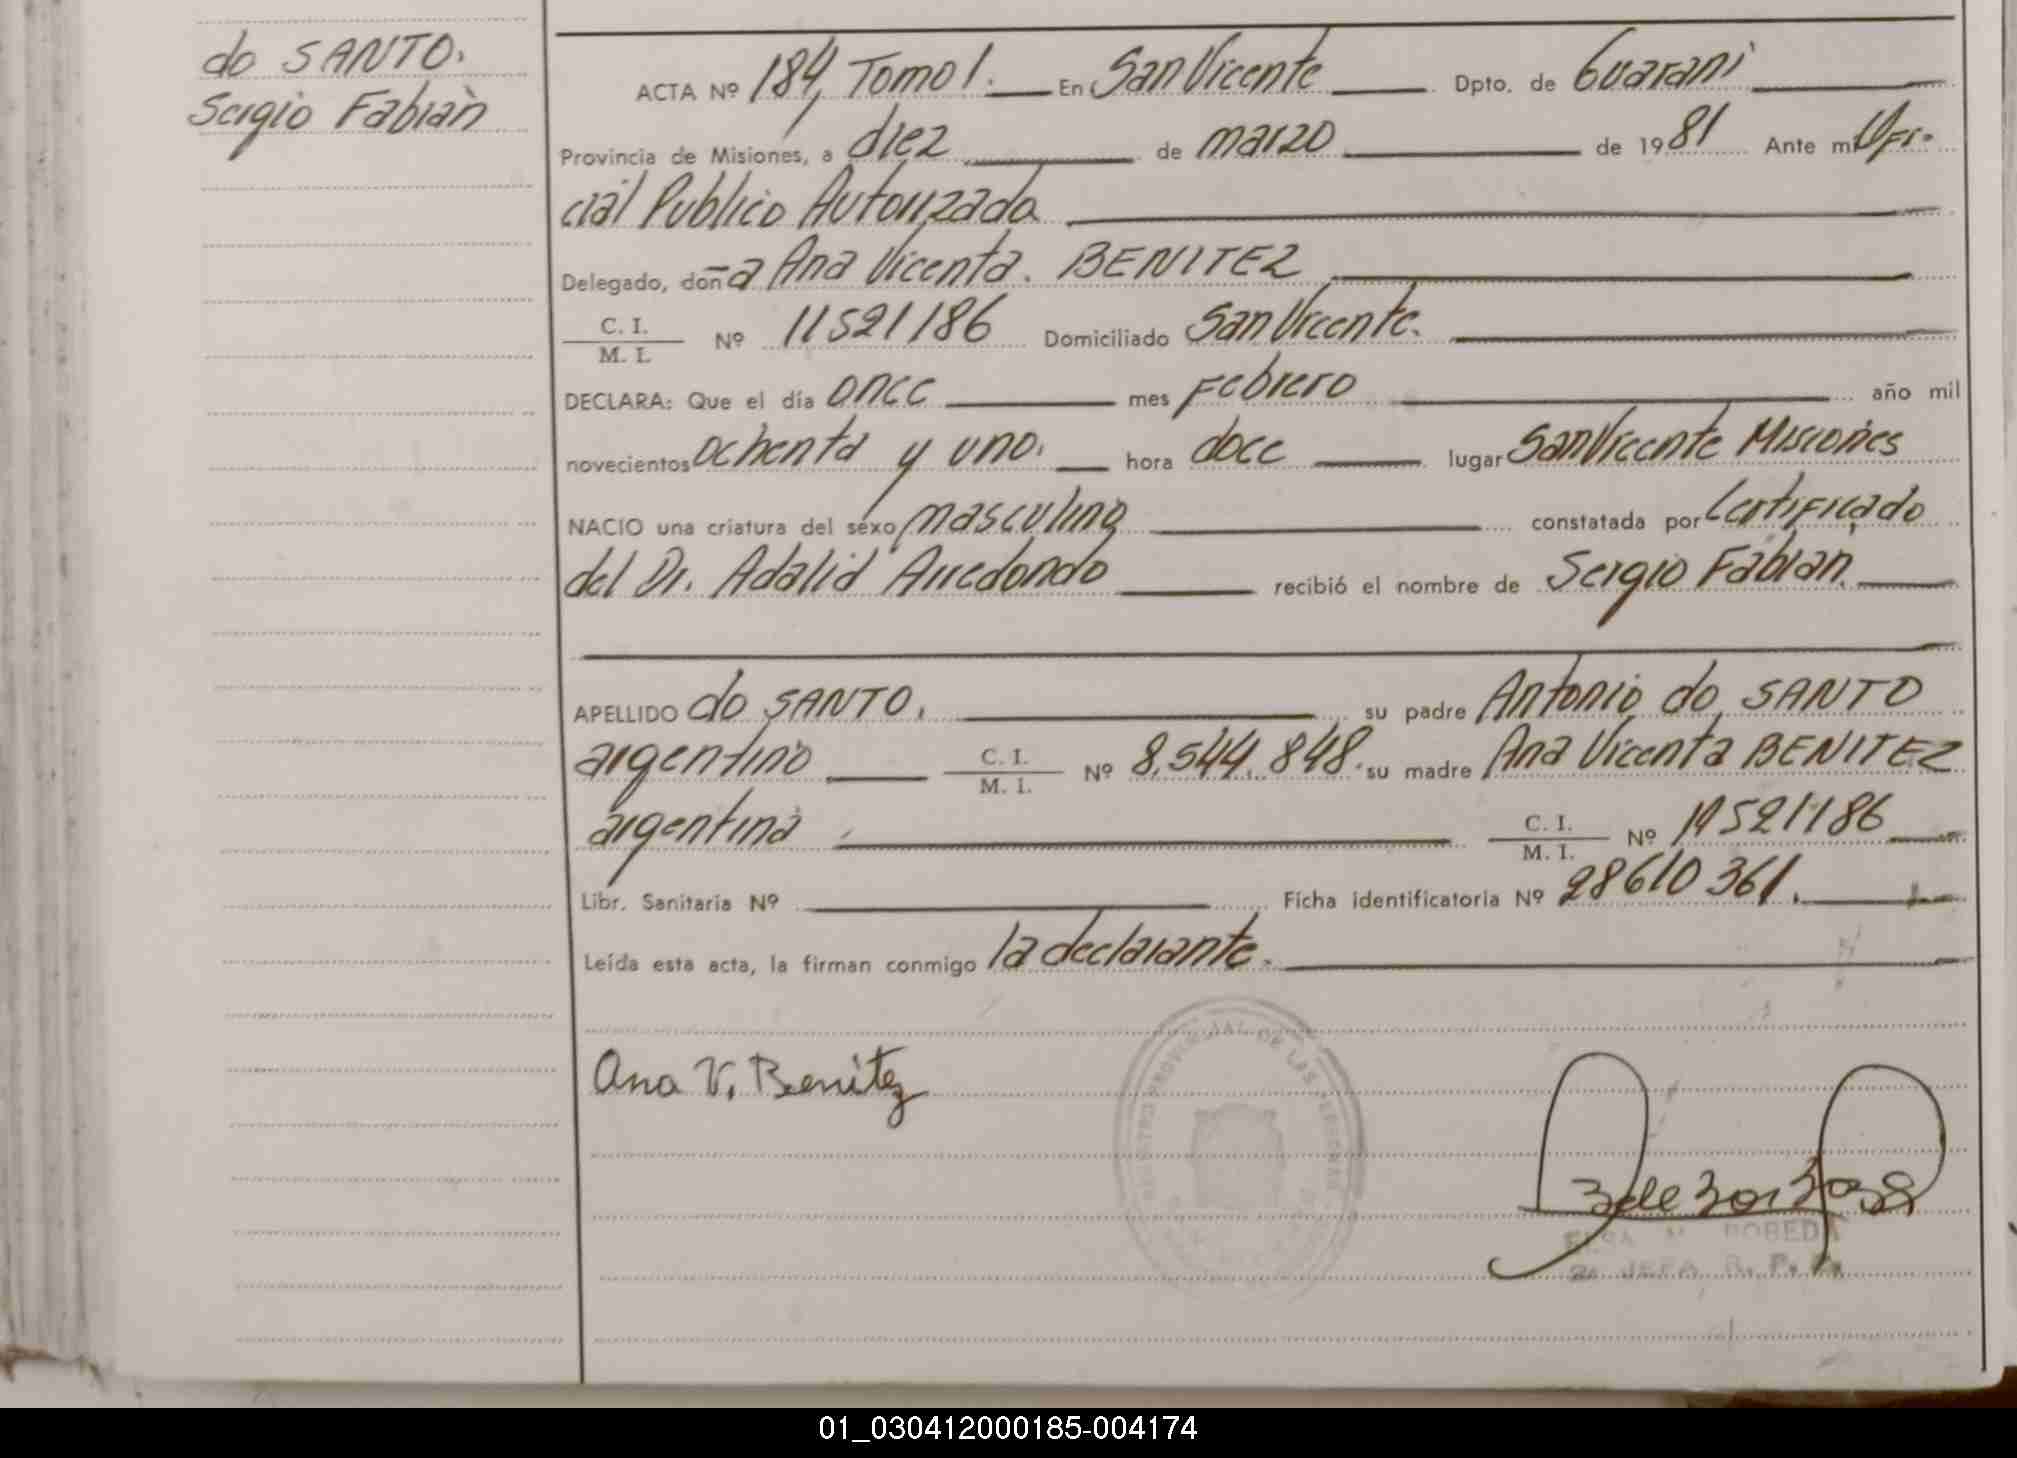 do SANTO.
Sergio Fabián
ACTA Nº 184, Tomo 1. En San Vicente Dpto. de Guaraní
Provincia de Misiones, a diez de marzo de 1981 Ante mí Ofi-
cial Público Autorizada
Delegado, doña Ana Vicenta. BENITEZ
C. I. / M. I. Nº 11521186 Domiciliado San Vicente.
DECLARA: Que el día once mes Febrero año mil
novecientos ochenta y uno. hora doce lugar San Vicente Misiones
NACIO una criatura del sexo masculino constatada por Certificado
del Dr. Adalid Arredondo recibió el nombre de Sergio Fabian
APELLIDO do SANTO. su padre Antonio do SANTO
argentino C. I. / M. I. Nº 8.544.848. su madre Ana Vicenta BENITEZ
argentina C. I. / M. I. Nº 11521186
Libr. Sanitaria Nº Ficha identificatoria Nº 28610361.
Leída esta acta, la firman conmigo la declarante.
Ana V. Benitez
REGISTRO PROVINCIAL DE LAS PERSONAS
JEFA R. P. P.
01_030412000185-004174